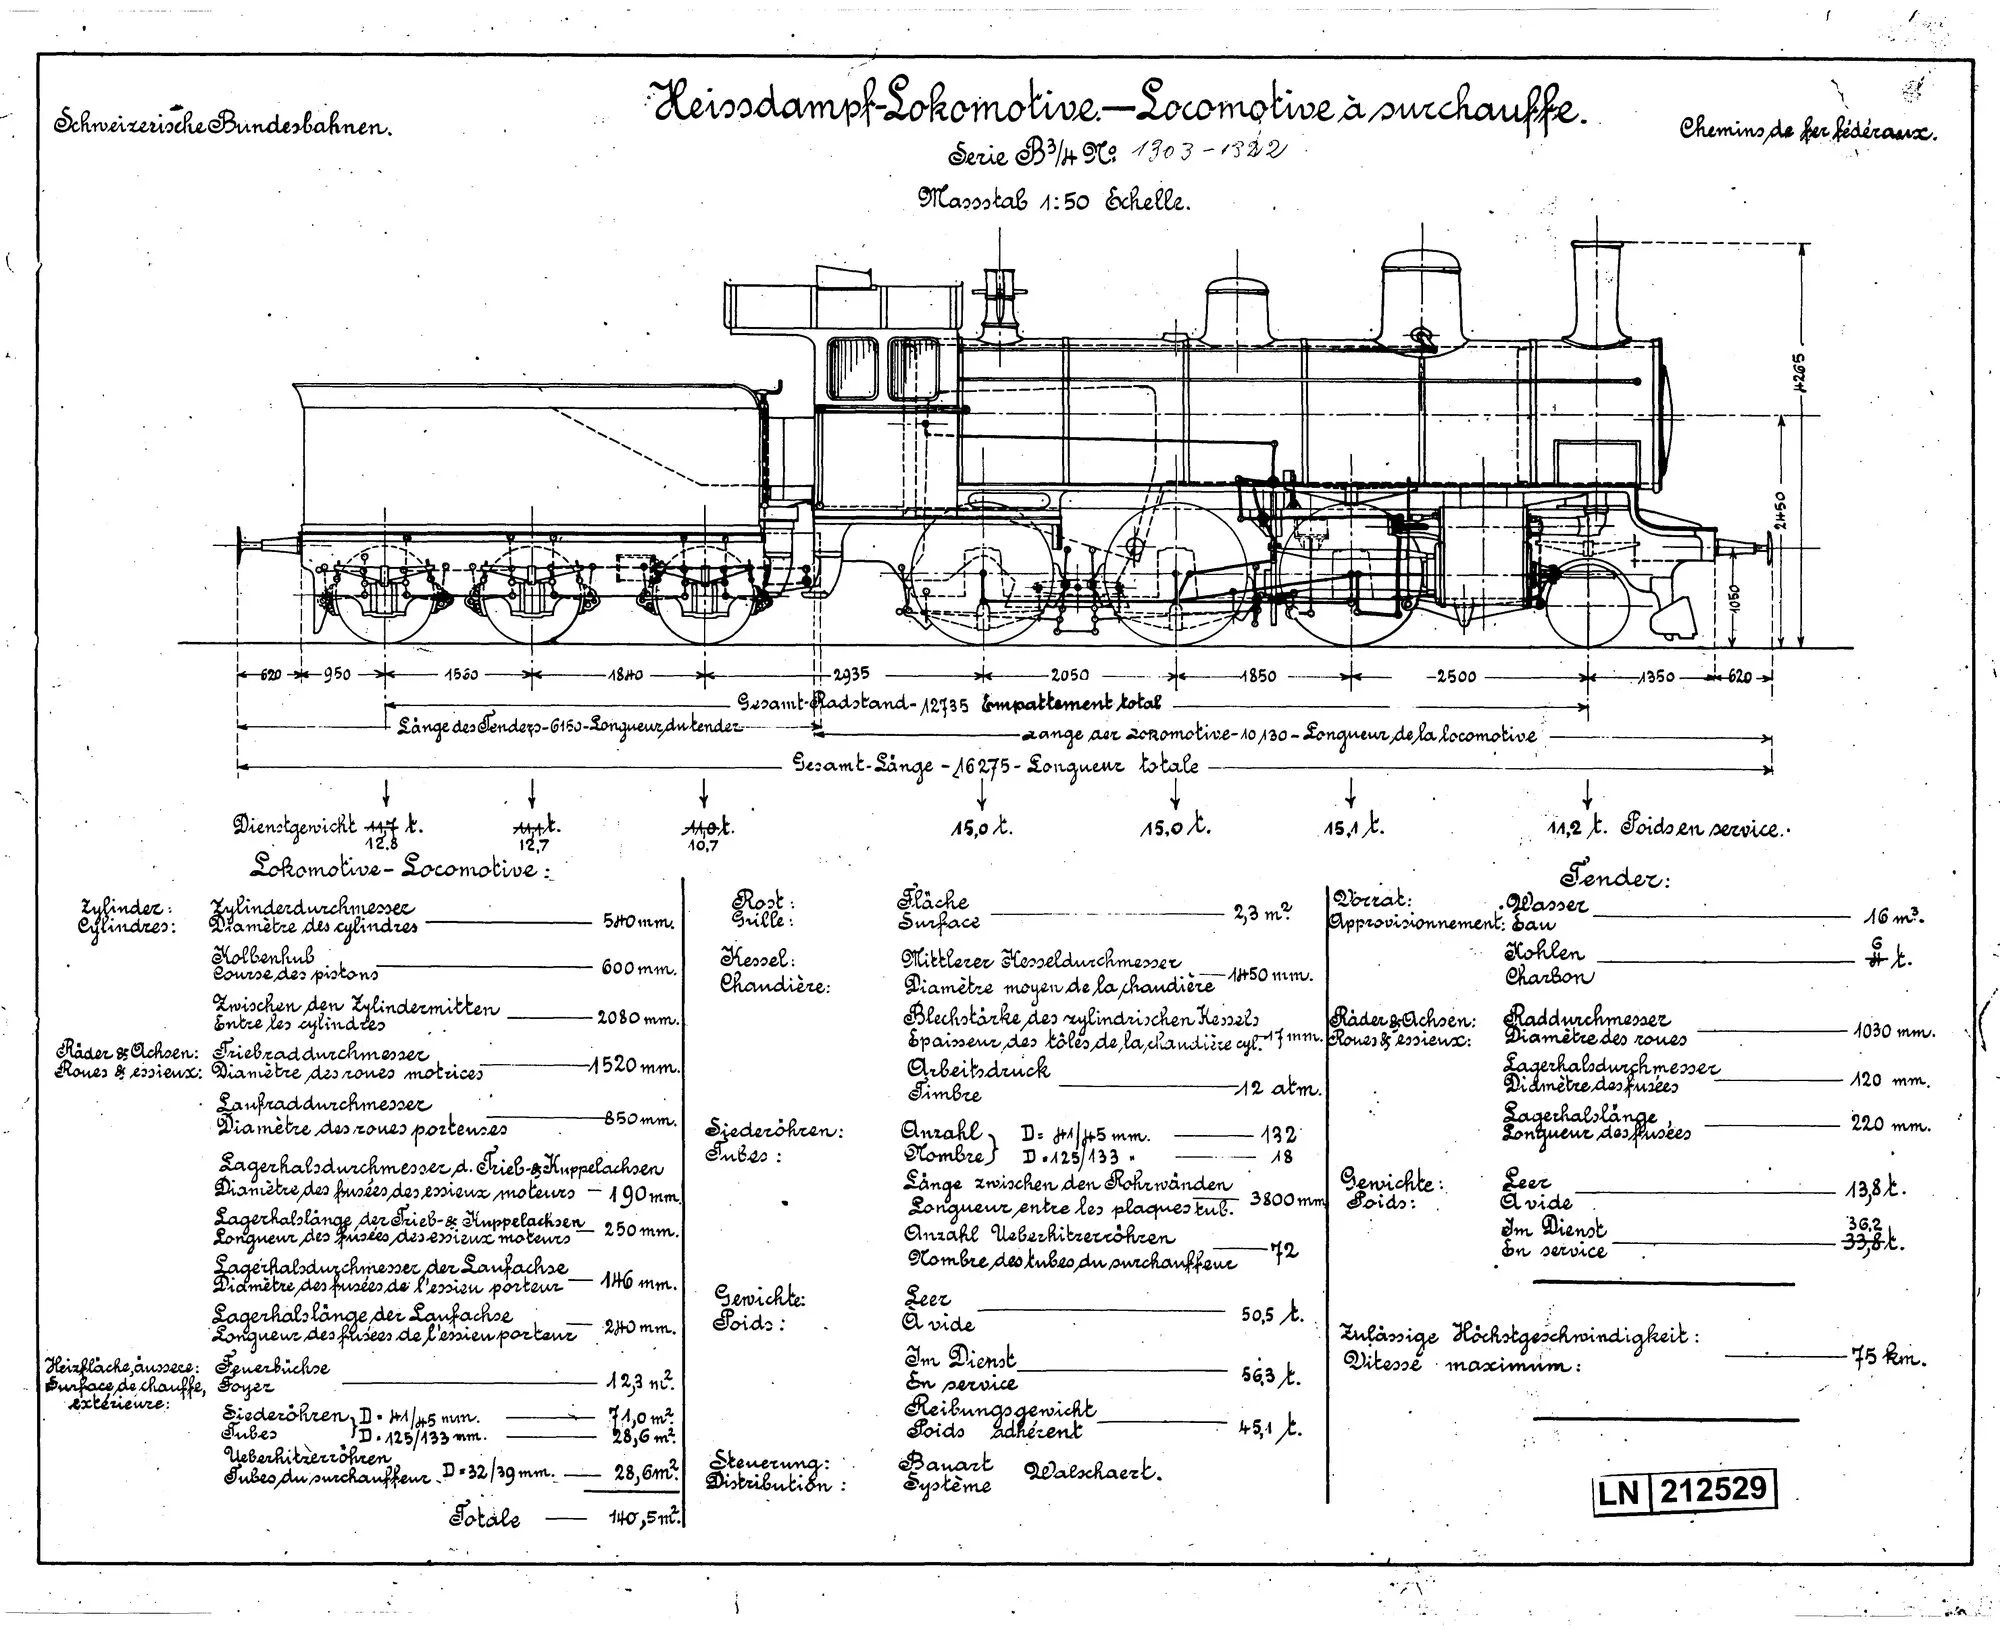 Schweizerische Bundesbahnen.
Heissdampf-Lokomotive.—Locomotive à surchauffe.
Chemins de fer fédéraux.
Serie B³/4 No. 1303-1322
Massstab 1:50 Echelle.
4265
2450
1050
620 950 1560 1840 2935 2050 1850 2500 1350 620
Gesamt-Radstand-12735 Empattement total
Länge des Tenders-6150-Longueur du tender
Länge der Lokomotive-10,130-Longueur de la locomotive
Gesamt-Länge-16275-Longueur totale
Dienstgewicht 11,7 t. 11,1 t. 11,0 t. 15,0 t. 15,0 t. 15,1 t. 11,2 t. Poids en service.
12.8 12,7 10,7
Lokomotive-Locomotive:
Zylinder: Zylinderdurchmesser
Cylindres: Diamètre des cylindres 540 mm.
Kolbenhub
Course des pistons 600 mm.
Zwischen den Zylindermitten
Entre les cylindres 2080 mm.
Räder & Achsen: Triebraddurchmesser
Roues & essieux: Diamètre des roues motrices 1520 mm.
Laufraddurchmesser
Diamètre des roues porteuses 850 mm.
Lagerhalsdurchmesser d. Trieb-& Kuppelachsen
Diamètre des fusées des essieux moteurs 190 mm.
Lagerhalslänge der Trieb-& Kuppelachsen
Longueur des fusées des essieux moteurs 250 mm.
Lagerhalsdurchmesser der Laufachse
Diamètre des fusées de l'essieu porteur 146 mm.
Lagerhalslänge der Laufachse
Longueur des fusées de l'essieu porteur 240 mm.
Heizfläche, äussere: Feuerbüchse
Surface de chauffe, Foyer 12,3 m².
extérieure:
Siederöhren D=41/45 mm. 71,0 m².
Tubes D=125/133 mm. 28,6 m².
Ueberhitzerröhren
Tubes du surchauffeur D=32/39 mm. 28,6 m².
Totale 140,5 m².
Rost: Fläche
Grille: Surface 2,3 m².
Kessel: Mittlerer Kesseldurchmesser
Chaudière: Diamètre moyen de la chaudière 1450 mm.
Blechstärke des zylindrischen Kessels
Epaisseur des tôles de la chaudière cyl. 17 mm.
Arbeitsdruck
Timbre 12 atm.
Siederöhren: Anzahl D=41/45 mm. 132
Tubes: Nombre D=125/133 " 18
Länge zwischen den Rohrwänden
Longueur entre les plaques tub. 3800 mm
Anzahl Ueberhitzerröhren
Nombre des tubes du surchauffeur 72
Gewichte: Leer
Poids: À vide 50,5 t.
Im Dienst
En service 56,3 t.
Reibungsgewicht
Poids adhérent 45,1 t.
Steuerung: Bauart
Distribution: Système Walschaert.
Tender:
Vorrat: Wasser
Approvisionnement: Eau 16 m³.
Kohlen 6
Charbon 4 t.
Räder & Achsen: Raddurchmesser
Roues & essieux: Diamètre des roues 1030 mm.
Lagerhalsdurchmesser
Diamètre des fusées 120 mm.
Lagerhalslänge
Longueur des fusées 220 mm.
Gewichte: Leer
Poids: À vide 13,8 t.
Im Dienst 36,2
En service 33,8 t.
Zulässige Höchstgeschwindigkeit:
Vitesse maximum: 75 km.
LN 212529